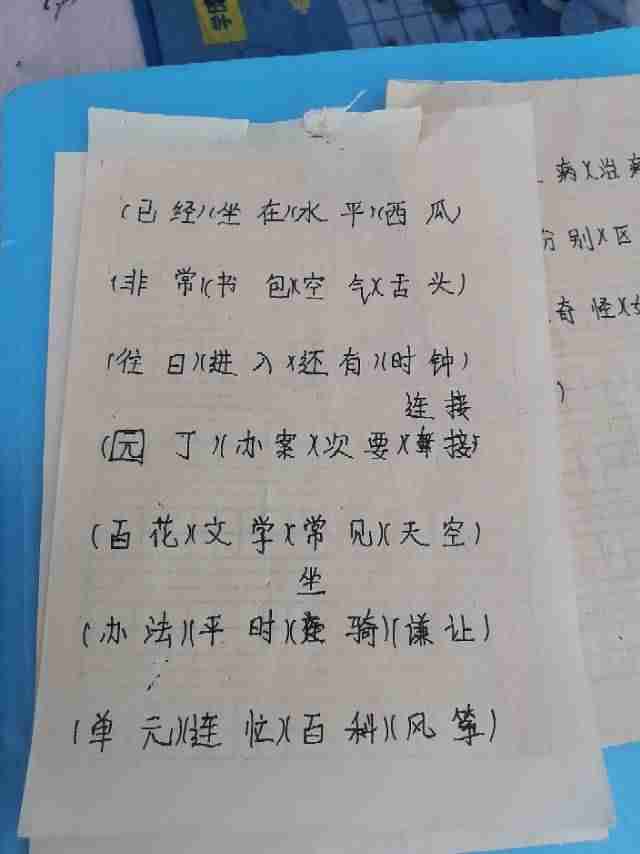 (已经)(坐在)(水平)(西瓜)
(非常)(书包)(空气)(舌头)
(往日)(进入)(还有)(时钟)
连接
(园丁)(办案)(次要)( 接)
(百花)(文学)(常见)(天空)
坐
(办法)(平时)( 骑)(谦让)
(单元)(连忙)(百科)(风筝)
病)(治病
份别)(区
奇怪)(
)